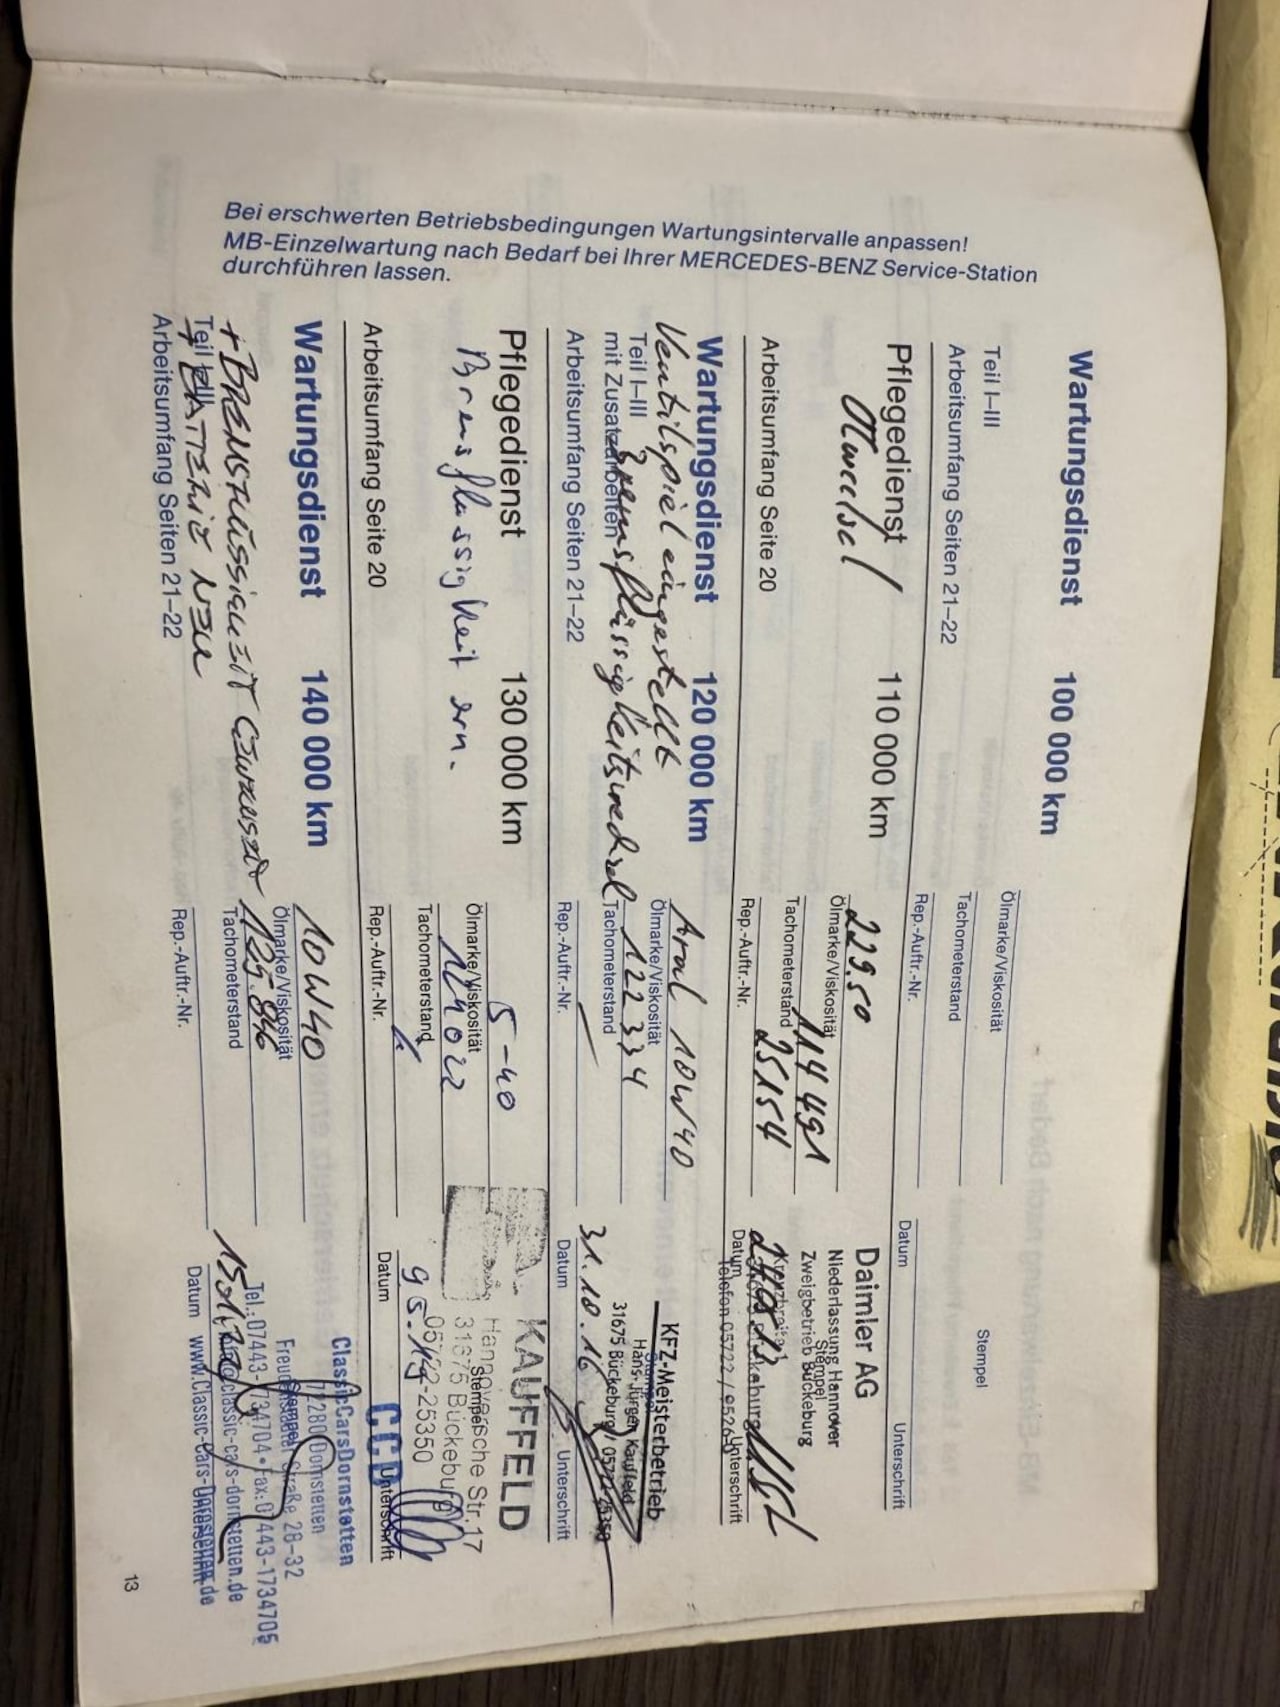 Bei erschwerten Betriebsbedingungen Wartungsintervalle anpassen!
MB-Einzelwartung nach Bedarf bei Ihrer MERCEDES-BENZ Service-Station
durchführen lassen.
Wartungsdienst 100 000 km
Teil I–III
Arbeitsumfang Seiten 21–22
Ölmarke/Viskosität
Tachometerstand
Rep.-Auftr.-Nr.
Stempel
Datum
Unterschrift
Pflegedienst 110 000 km
Ölwechsel
Arbeitsumfang Seite 20
229.50
Ölmarke/Viskosität
114491
Tachometerstand
25154
Rep.-Auftr.-Nr.
Daimler AG
Niederlassung Hannover
Stempel
Zweigbetrieb Bückeburg
Kreuzbreite 1
Telefon 05722 /
Datum
Unterschrift
Wartungsdienst 120 000 km
Ventilspiel eingestellt
Teil I–III
mit Zusatzarbeiten
Bremsflüssigkeitswechsel
Arbeitsumfang Seiten 21–22
Aral 10W40
Ölmarke/Viskosität
122334
Tachometerstand
Rep.-Auftr.-Nr.
KFZ-Meisterbetrieb
Stempel
Hans-Jürgen Kauffeld
31675 Bückeburg / 05722-25350
31.10.16
Datum
Unterschrift
Pflegedienst 130 000 km
Bremsflüssigkeit ern.
Arbeitsumfang Seite 20
5-40
Ölmarke/Viskosität
124022
Tachometerstand
Rep.-Auftr.-Nr.
KAUFFELD
Hannoversche Str. 17
Stempel
31675 Bückeburg
05722-25350
Datum
Unterschrift
Wartungsdienst 140 000 km
+ BREMSFLÜSSIGKEIT GEWECHSELT
Teil
+ BATTERIE NEU
Arbeitsumfang Seiten 21–22
10W40
Ölmarke/Viskosität
125.846
Tachometerstand
Rep.-Auftr.-Nr.
ClassicCarsDornstetten
CCD
72280 Dornstetten
Stempel
Freudenstädter Straße 28-32
Tel.:07443-1734704 • Fax:07443-1734705
info@classic-cars-dornstetten.de
www.Classic-Cars-Dornstetten.de
Datum
Unterschrift
13